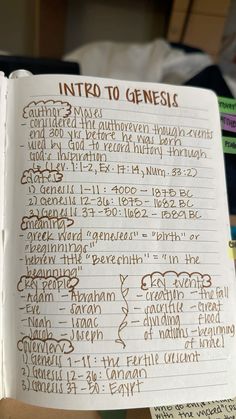 INTRO TO GENESIS
author: Moses
- considered the author even though events
end 300 yrs before he was born
- used by God to record history through
God's inspiration
(Lev. 1:1-2, Ex. 17:14, Num. 33:2)
dates:
1) Genesis 1-11: 4000 - 1875 BC
2) Genesis 12-36: 1875 - 1682 BC
3) Genesis 37-50: 1682 - 1589 BC
meaning:
- greek word "geneseos" = "birth" or
"beginnings"
- hebrew title "Bereshith" = "in the
beginning"
key people
- Adam - Abraham
- Eve - Sarah
- Noah - Isaac
- Jacob - Joseph
key events
- creation - the fall
- sacrifice - great
- dividing flood
of nations - beginning
of Israel
overview
1) Genesis 1-11: the Fertile Crescent
2) Genesis 12-36: Canaan
3) Genesis 37-50: Egypt
with the